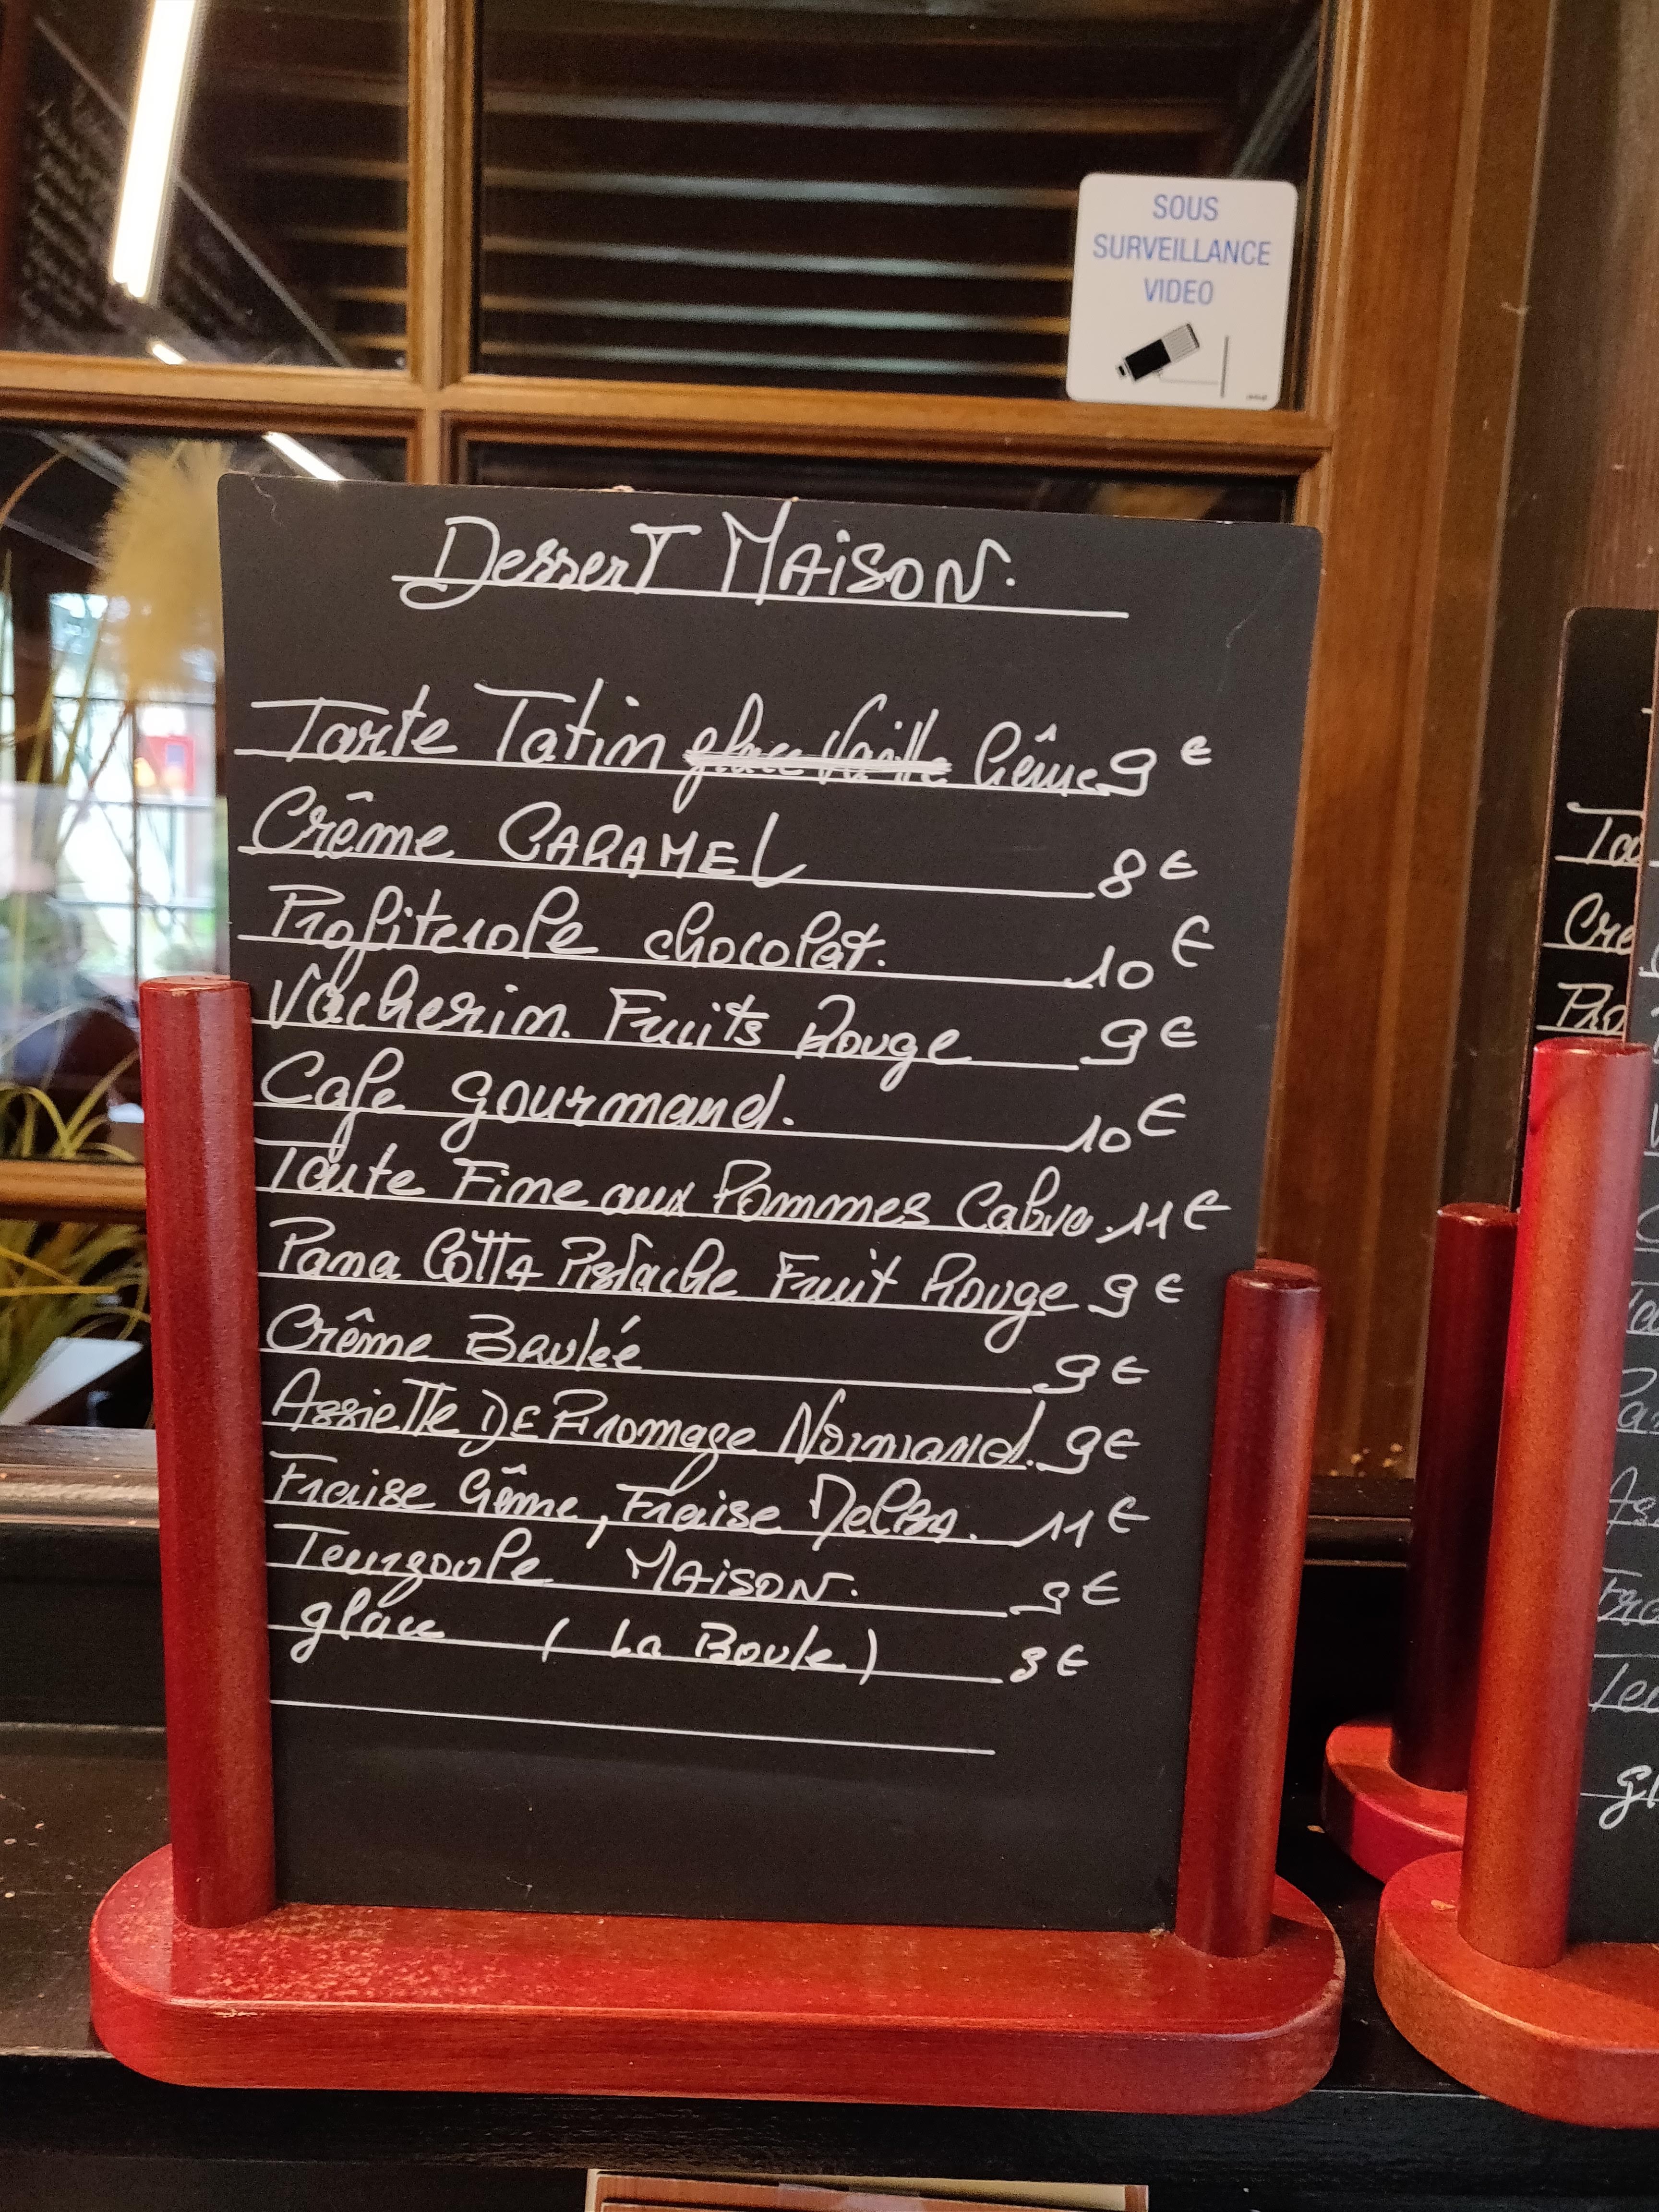 SOUS
SURVEILLANCE
VIDEO
Dessert MAiSON.
Tarte Tatin glace Vanille Crême 9 €
Crême CARAMEL 8 €
Profiterole chocolat. 10 €
Vacherin Fruits Rouge 9 €
Cafe gourmand. 10 €
Tarte Fine aux Pommes 11 €
Pana COTTA Pistache Fruit Rouge 9 €
Crême Brulée 9 €
Assiette DE Fromage Normand. 9 €
Fraise Crême, Fraise Melba. 11 €
Teurgoule MAiSON. 9 €
glace ( La Boule ) 3 €
Cre
Pro